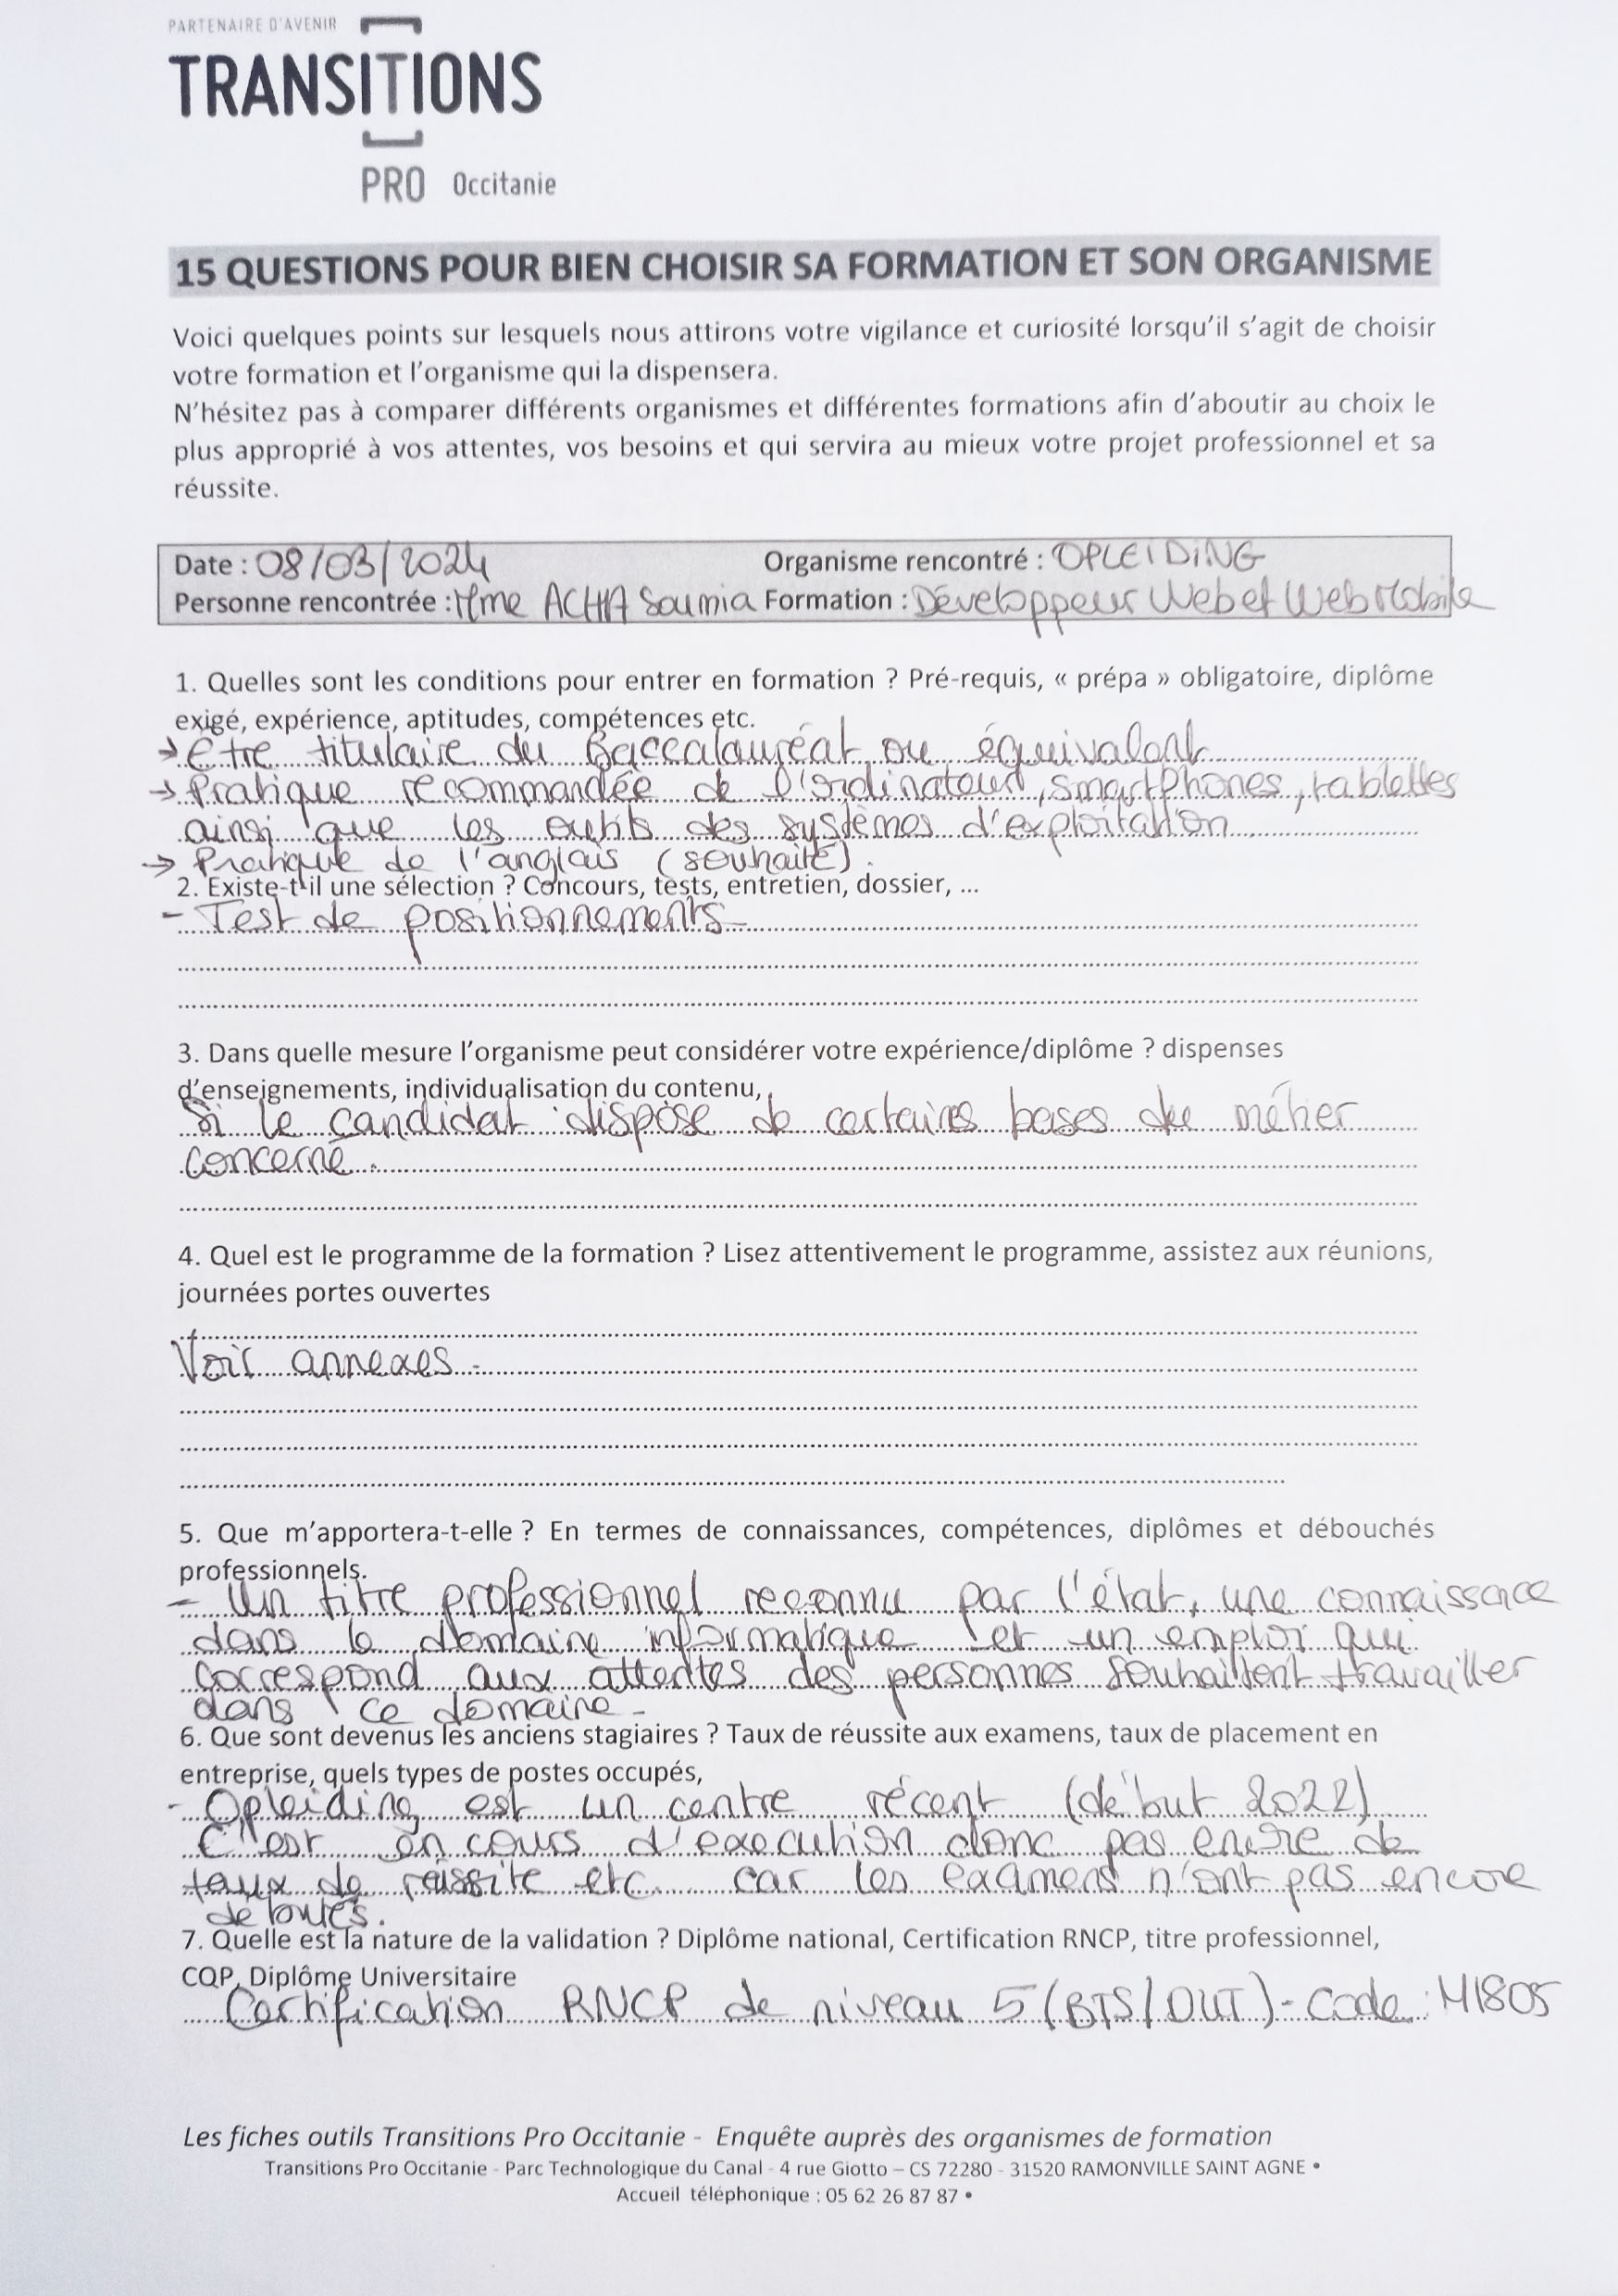 PARTENAIRE D'AVENIR
TRANSITIONS
PRO Occitanie
15 QUESTIONS POUR BIEN CHOISIR SA FORMATION ET SON ORGANISME
Voici quelques points sur lesquels nous attirons votre vigilance et curiosité lorsqu'il s'agit de choisir
votre formation et l'organisme qui la dispensera.
N'hésitez pas à comparer différents organismes et différentes formations afin d'aboutir au choix le
plus approprié à vos attentes, vos besoins et qui servira au mieux votre projet professionnel et sa
réussite.
Date : 08/03/2024 Organisme rencontré : OPLEIDING
Personne rencontrée : Mme ACHA Soumia Formation : Développeur Web et Web Mobile
1. Quelles sont les conditions pour entrer en formation ? Pré-requis, « prépa » obligatoire, diplôme
exigé, expérience, aptitudes, compétences etc.
→ Etre titulaire du Baccalauréat ou équivalent
→ Pratique recommandée de l'ordinateur, smartphones, tablettes
ainsi que les outils des systèmes d'exploitation
→ Pratique de l'anglais (souhaité).
2. Existe-t-il une sélection ? Concours, tests, entretien, dossier, ...
- Test de positionnements -
3. Dans quelle mesure l'organisme peut considérer votre expérience/diplôme ? dispenses
d'enseignements, individualisation du contenu,
Si le candidat dispose de certaines bases du métier
concerné.
4. Quel est le programme de la formation ? Lisez attentivement le programme, assistez aux réunions,
journées portes ouvertes
Voir annexes -
5. Que m'apportera-t-elle ? En termes de connaissances, compétences, diplômes et débouchés
professionnels.
- Un titre professionnel reconnu par l'état, une connaissance
dans le domaine informatique et un emploi qui
correspond aux attentes des personnes souhaitent travailler
dans ce domaine -
6. Que sont devenus les anciens stagiaires ? Taux de réussite aux examens, taux de placement en
entreprise, quels types de postes occupés,
- Opleiding est un centre récent (début 2022)
C'est en cours d'execution donc pas encore de
taux de réussite etc. car les examens n'ont pas encore
débutés.
7. Quelle est la nature de la validation ? Diplôme national, Certification RNCP, titre professionnel,
CQP, Diplôme Universitaire
Certification RNCP de niveau 5 (BTS/DUT) - Code : M1805
Les fiches outils Transitions Pro Occitanie - Enquête auprès des organismes de formation
Transitions Pro Occitanie - Parc Technologique du Canal - 4 rue Giotto – CS 72280 - 31520 RAMONVILLE SAINT AGNE •
Accueil téléphonique : 05 62 26 87 87 •